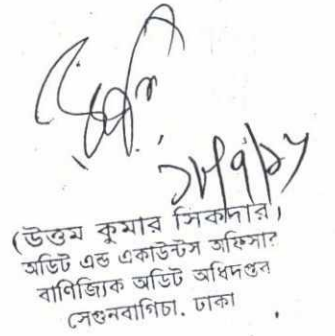 (উত্তম কুমার সিকদার)
অডিট এন্ড একাউন্টস অফিসার
বাণিজ্যিক অডিট অধিদপ্তর
সেগুনবাগিচা, ঢাকা